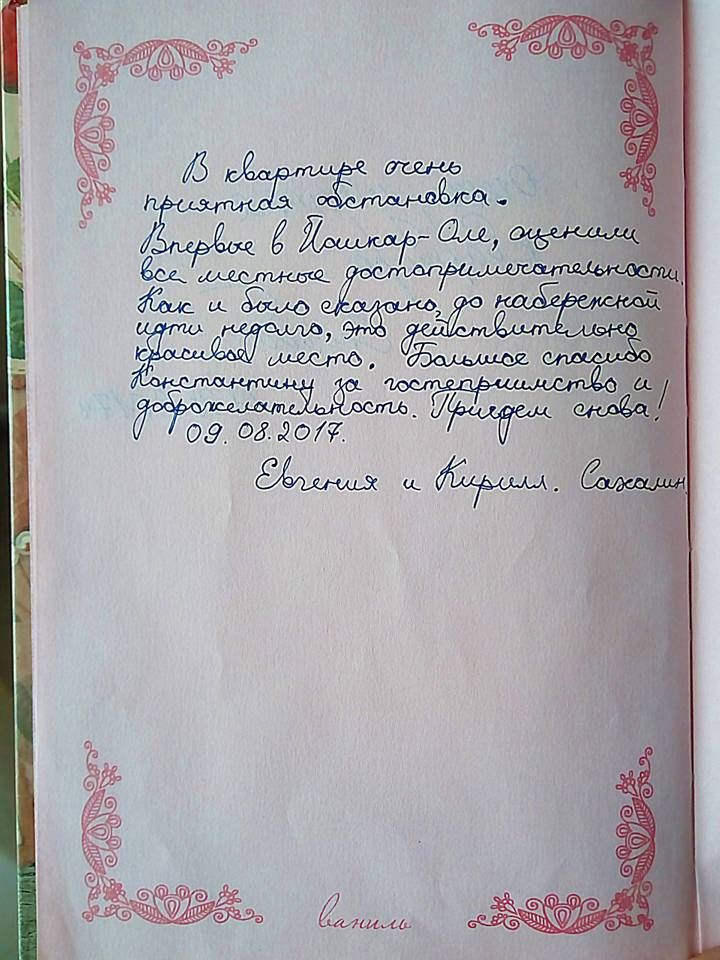 В квартире очень
приятная обстановка.
Впервые в Йошкар-Оле, оценили
все местные достопримечательности.
Как и было сказано, до набережной
идти недолго, это действительно
красивое место. Большое спасибо
Константину за гостеприимство и
доброжелательность. Приедем снова!
09.08.2017.
Евгения и Кирилл. Сахалин.
ваниль